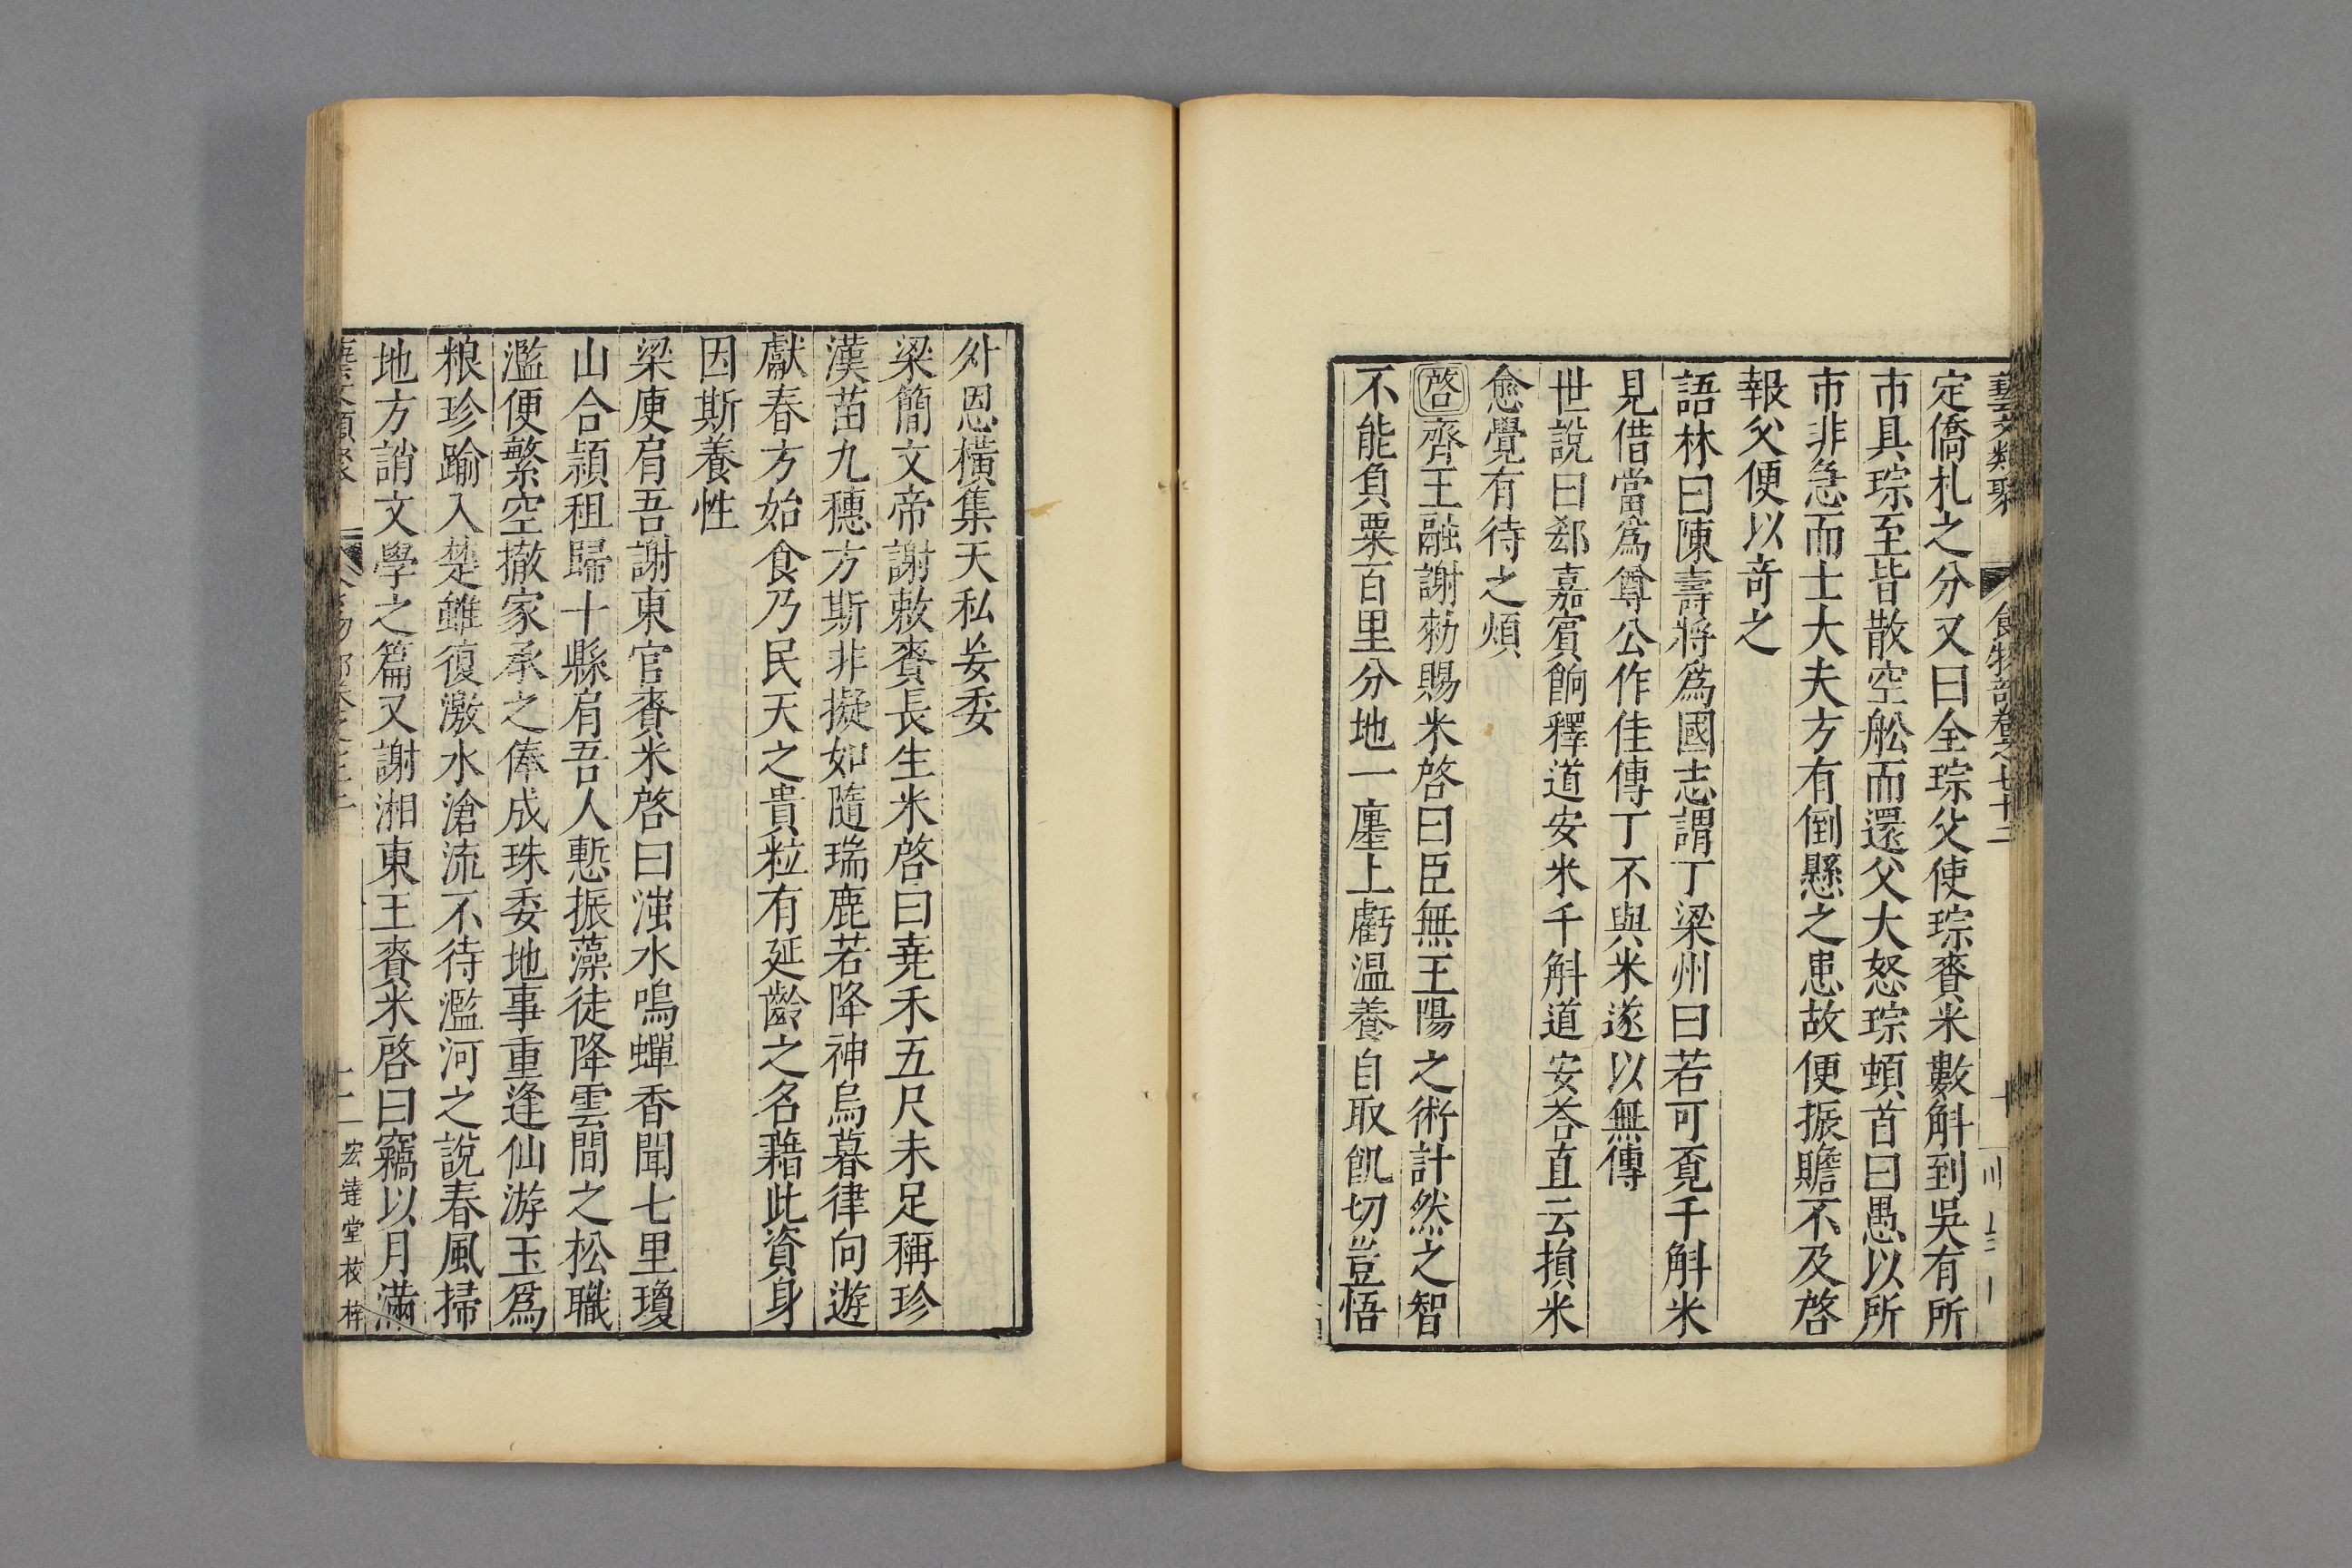 藝文類聚 食物部卷之七十二 十
定僑札之分又曰全琮父使琮賫米數斛到吳有所
市具琮至皆散空舩而還父大怒琮頓首曰愚以所
市非急而士大夫方有倒懸之患故便振贍不及啓
報父便以竒之
語林曰陳壽將爲國志謂丁梁州曰若可覔千斛米
見借當爲尊公作佳傳丁不與米遂以無傳
世說曰郄嘉賓餉釋道安米千斛道安荅直云損米
愈覺有待之煩
啓齊王融謝勑賜米啓曰臣無王陽之術計然之智
不能負粟百里分地一廛上虧温養自取飢切豈悟
外恩横集天私妄委
梁簡文帝謝敕賚長生米啓曰堯禾五尺未足稱珍
漢苗九穗方斯非擬如隨瑞鹿若降神烏暮律向遊
獻春方始食乃民天之貴粒有延齡之名藉此資身
因斯養性
梁庾肩吾謝東官賚米啓曰滍水鳴蟬香聞七里瓊
山合頴租歸十縣肩吾人慙振藻徒降雲間之松職
濫便繁空撤家承之俸成珠委地事重逢仙游玉爲
粮珍踰入楚雖復激水滄流不待濫河之說春風掃
地方誚文學之篇又謝湘東王賚米啓曰竊以月滿
宏達堂校梓